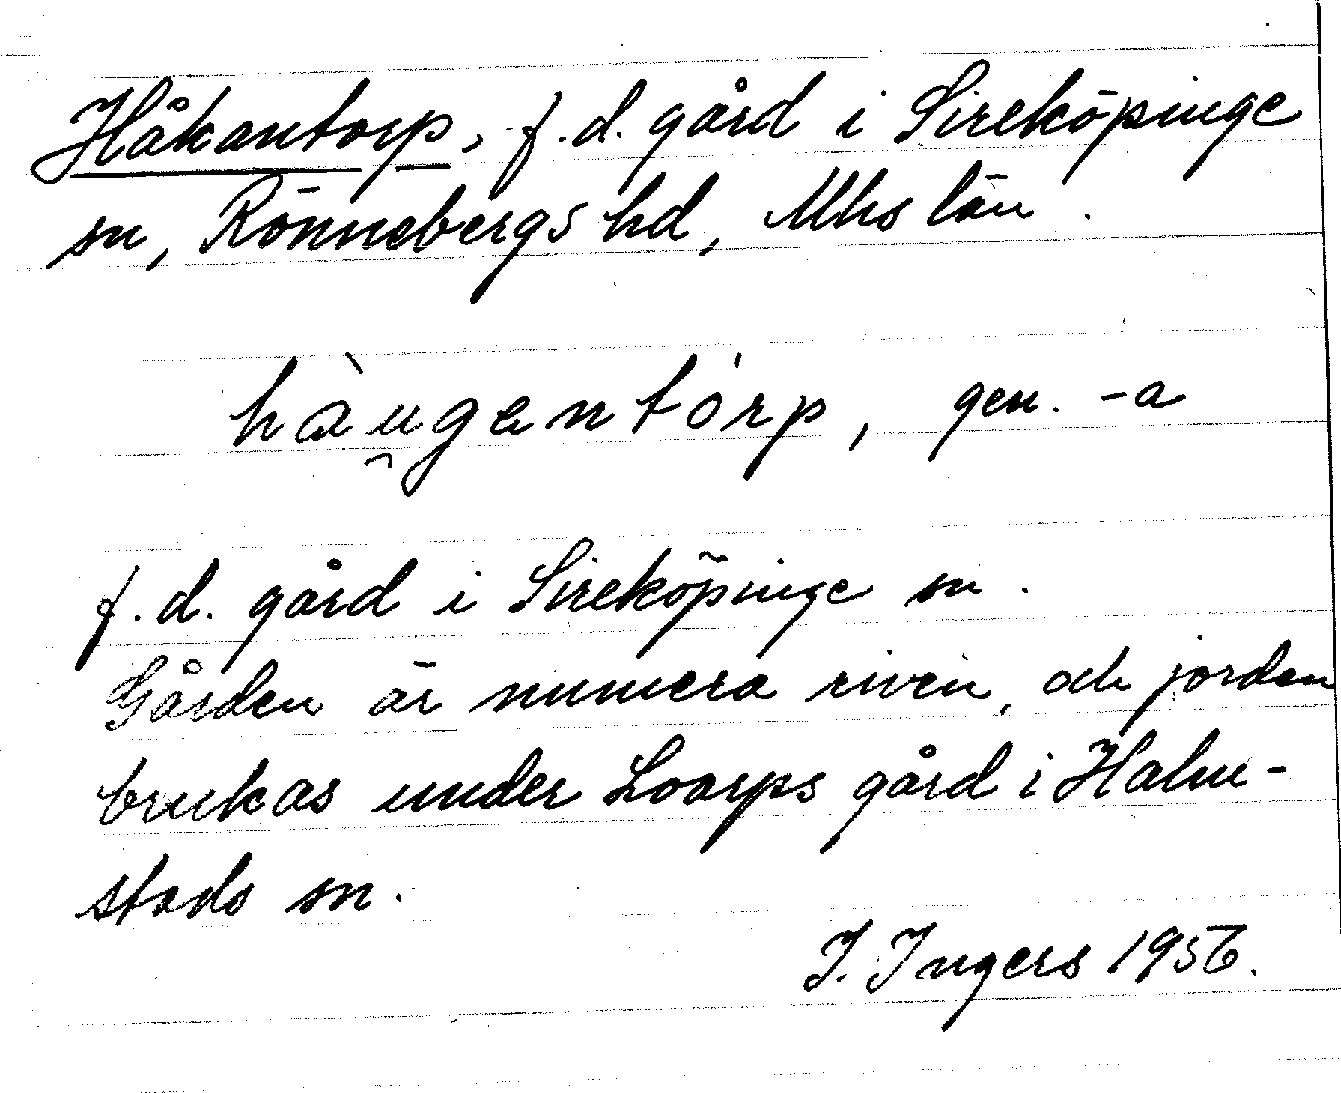 Håkantorp, f.d. gård i Sireköpinge
sn, Rönnebergs hd, Mhs län.
hàu̯gantórp, gen. -a
f.d. gård i Sireköpinge sn.
Gården är numera riven, och jorden
brukas under Loarps gård i Halm-
stads sn.
I. Ingers 1956.